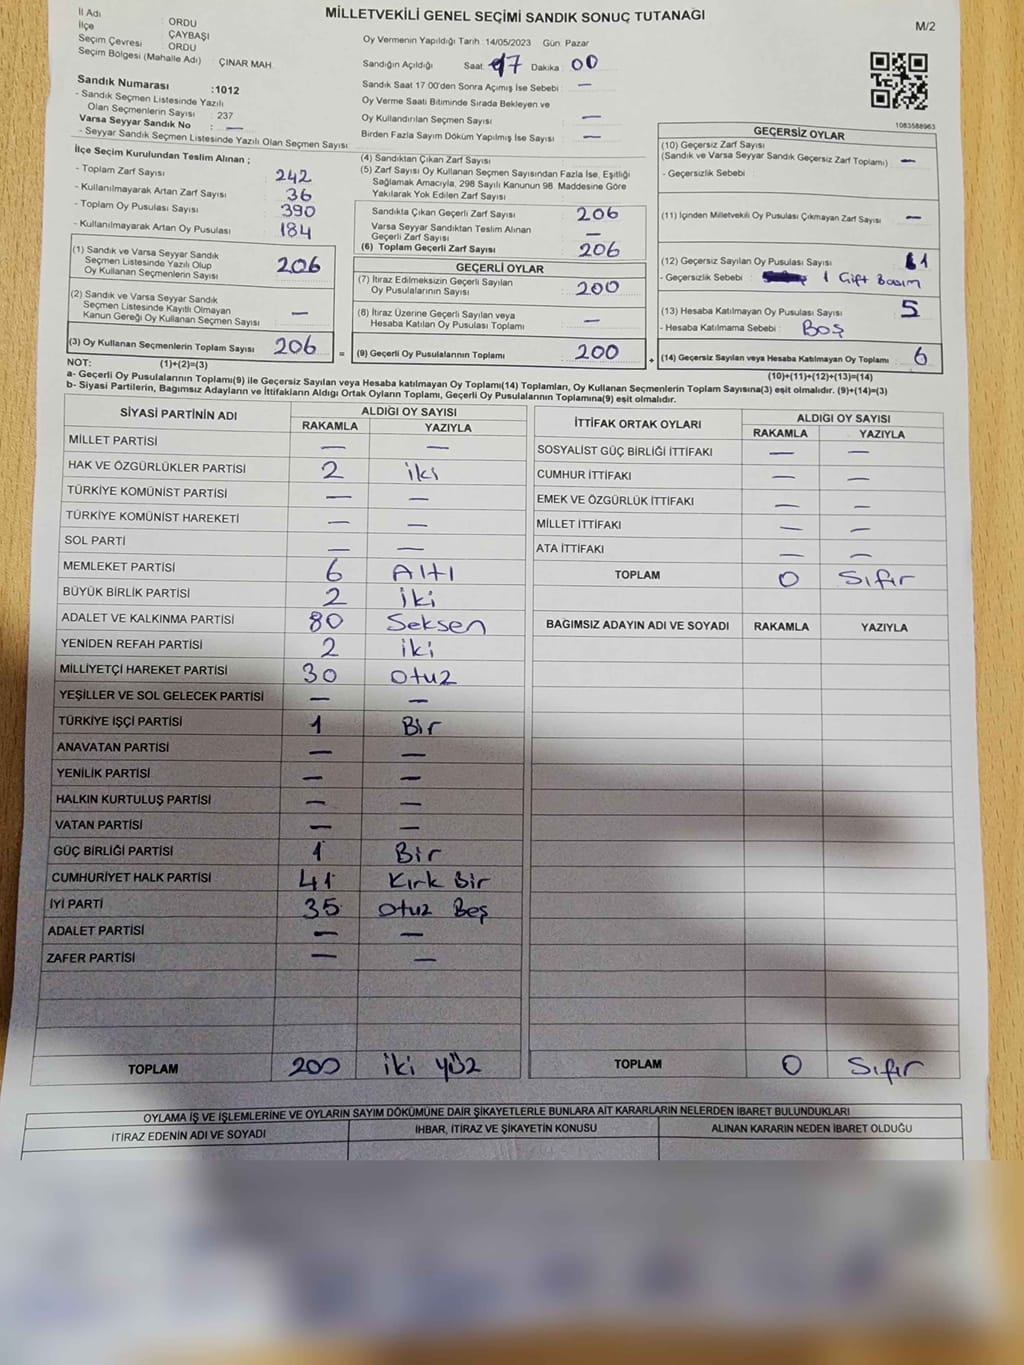 MİLLETVEKİLİ GENEL SEÇİMİ SANDIK SONUÇ TUTANAĞI
M/2
İl Adı : ORDU
İlçe : ÇAYBAŞI
Seçim Çevresi : ORDU
Seçim Bölgesi (Mahalle Adı) : ÇINAR MAH.
Oy Vermenin Yapıldığı Tarih : 14/05/2023 Gün : Pazar
Sandığın Açıldığı Saat: 17 Dakika : 00
Sandık Saat 17.00'den Sonra Açımış İse Sebebi : —
Oy Verme Saati Bitiminde Sırada Bekleyen ve
Oy Kullandırılan Seçmen Sayısı : —
Birden Fazla Sayım Döküm Yapılmış İse Sayısı : —
1083588963
Sandık Numarası : 1012
- Sandık Seçmen Listesinde Yazılı
Olan Seçmenlerin Sayısı : 237
Varsa Seyyar Sandık No : —
- Seyyar Sandık Seçmen Listesinde Yazılı Olan Seçmen Sayısı :
İlçe Seçim Kurulundan Teslim Alınan ;
- Toplam Zarf Sayısı : 242
- Kullanılmayarak Artan Zarf Sayısı : 36
- Toplam Oy Pusulası Sayısı : 390
- Kullanılmayarak Artan Oy Pusulası : 184
(1) Sandık ve Varsa Seyyar Sandık
Seçmen Listesinde Yazılı Olup
Oy Kullanan Seçmenlerin Sayısı : 206
(2) Sandık ve Varsa Seyyar Sandık
Seçmen Listesinde Kayıtlı Olmayan
Kanun Gereği Oy Kullanan Seçmen Sayısı : —
(3) Oy Kullanan Seçmenlerin Toplam Sayısı : 206
(4) Sandıktan Çıkan Zarf Sayısı :
(5) Zarf Sayısı Oy Kullanan Seçmen Sayısından Fazla İse, Eşitliği
Sağlamak Amacıyla, 298 Sayılı Kanunun 98. Maddesine Göre
Yakılarak Yok Edilen Zarf Sayısı :
Sandıkta Çıkan Geçerli Zarf Sayısı : 206
Varsa Seyyar Sandıktan Teslim Alınan
Geçerli Zarf Sayısı : —
(6) Toplam Geçerli Zarf Sayısı : 206
GEÇERLİ OYLAR
(7) İtiraz Edilmeksizin Geçerli Sayılan
Oy Pusulalarının Sayısı : 200
(8) İtiraz Üzerine Geçerli Sayılan veya
Hesaba Katılan Oy Pusulası Toplamı : —
= (9) Geçerli Oy Pusulalarının Toplamı : 200
GEÇERSİZ OYLAR
(10) Geçersiz Zarf Sayısı
(Sandık ve Varsa Seyyar Sandık Geçersiz Zarf Toplamı) : —
- Geçersizlik Sebebi :
(11) İçinden Milletvekili Oy Pusulası Çıkmayan Zarf Sayısı : —
(12) Geçersiz Sayılan Oy Pusulası Sayısı : 1
- Geçersizlik Sebebi : 1 Çift Basım
(13) Hesaba Katılmayan Oy Pusulası Sayısı : 5
- Hesaba Katılmama Sebebi : Boş
+ (14) Geçersiz Sayılan veya Hesaba Katılmayan Oy Toplamı : 6
NOT: (1)+(2)=(3)
(10)+(11)+(12)+(13)=(14)
a- Geçerli Oy Pusulalarının Toplamı(9) ile Geçersiz Sayılan veya Hesaba katılmayan Oy Toplamı(14) Toplamları, Oy Kullanan Seçmenlerin Toplam Sayısına(3) eşit olmalıdır. (9)+(14)=(3)
b- Siyasi Partilerin, Bağımsız Adayların ve İttifakların Aldığı Ortak Oyların Toplamı, Geçerli Oy Pusulalarının Toplamına(9) eşit olmalıdır.
SİYASİ PARTİNİN ADI ALDIĞI OY SAYISI
RAKAMLA YAZIYLA
MİLLET PARTİSİ — —
HAK VE ÖZGÜRLÜKLER PARTİSİ 2 iki
TÜRKİYE KOMÜNİST PARTİSİ — —
TÜRKİYE KOMÜNİST HAREKETİ — —
SOL PARTİ — —
MEMLEKET PARTİSİ 6 Altı
BÜYÜK BİRLİK PARTİSİ 2 iki
ADALET VE KALKINMA PARTİSİ 80 Seksen
YENİDEN REFAH PARTİSİ 2 iki
MİLLİYETÇİ HAREKET PARTİSİ 30 Otuz
YEŞİLLER VE SOL GELECEK PARTİSİ — —
TÜRKİYE İŞÇİ PARTİSİ 1 Bir
ANAVATAN PARTİSİ — —
YENİLİK PARTİSİ — —
HALKIN KURTULUŞ PARTİSİ — —
VATAN PARTİSİ — —
GÜÇ BİRLİĞİ PARTİSİ 1 Bir
CUMHURİYET HALK PARTİSİ 41 Kırk Bir
İYİ PARTİ 35 Otuz Beş
ADALET PARTİSİ — —
ZAFER PARTİSİ — —
TOPLAM 200 iki yüz
İTTİFAK ORTAK OYLARI ALDIĞI OY SAYISI
RAKAMLA YAZIYLA
SOSYALİST GÜÇ BİRLİĞİ İTTİFAKI — —
CUMHUR İTTİFAKI — —
EMEK VE ÖZGÜRLÜK İTTİFAKI — —
MİLLET İTTİFAKI — —
ATA İTTİFAKI — —
TOPLAM 0 Sıfır
BAĞIMSIZ ADAYIN ADI VE SOYADI RAKAMLA YAZIYLA
TOPLAM 0 Sıfır
OYLAMA İŞ VE İŞLEMLERİNE VE OYLARIN SAYIM DÖKÜMÜNE DAİR ŞİKAYETLERLE BUNLARA AİT KARARLARIN NELERDEN İBARET BULUNDUKLARI
İTİRAZ EDENİN ADI VE SOYADI İHBAR, İTİRAZ VE ŞİKAYETİN KONUSU ALINAN KARARIN NEDEN İBARET OLDUĞU